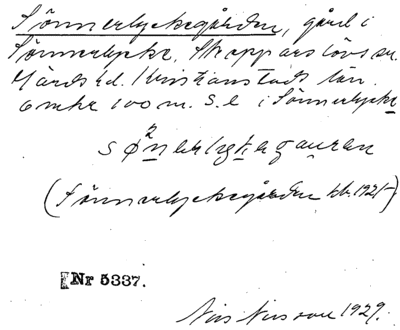 Sönnerlyckegården, gård i
Sönnerlycke, Skepparslövs sn.
Gärds hd. Kristianstads län.
omkr 100 m. S.
i Sönnerlycke
(Sönnerlyckegården kb. 1921-)
Nr 5337.
1929.